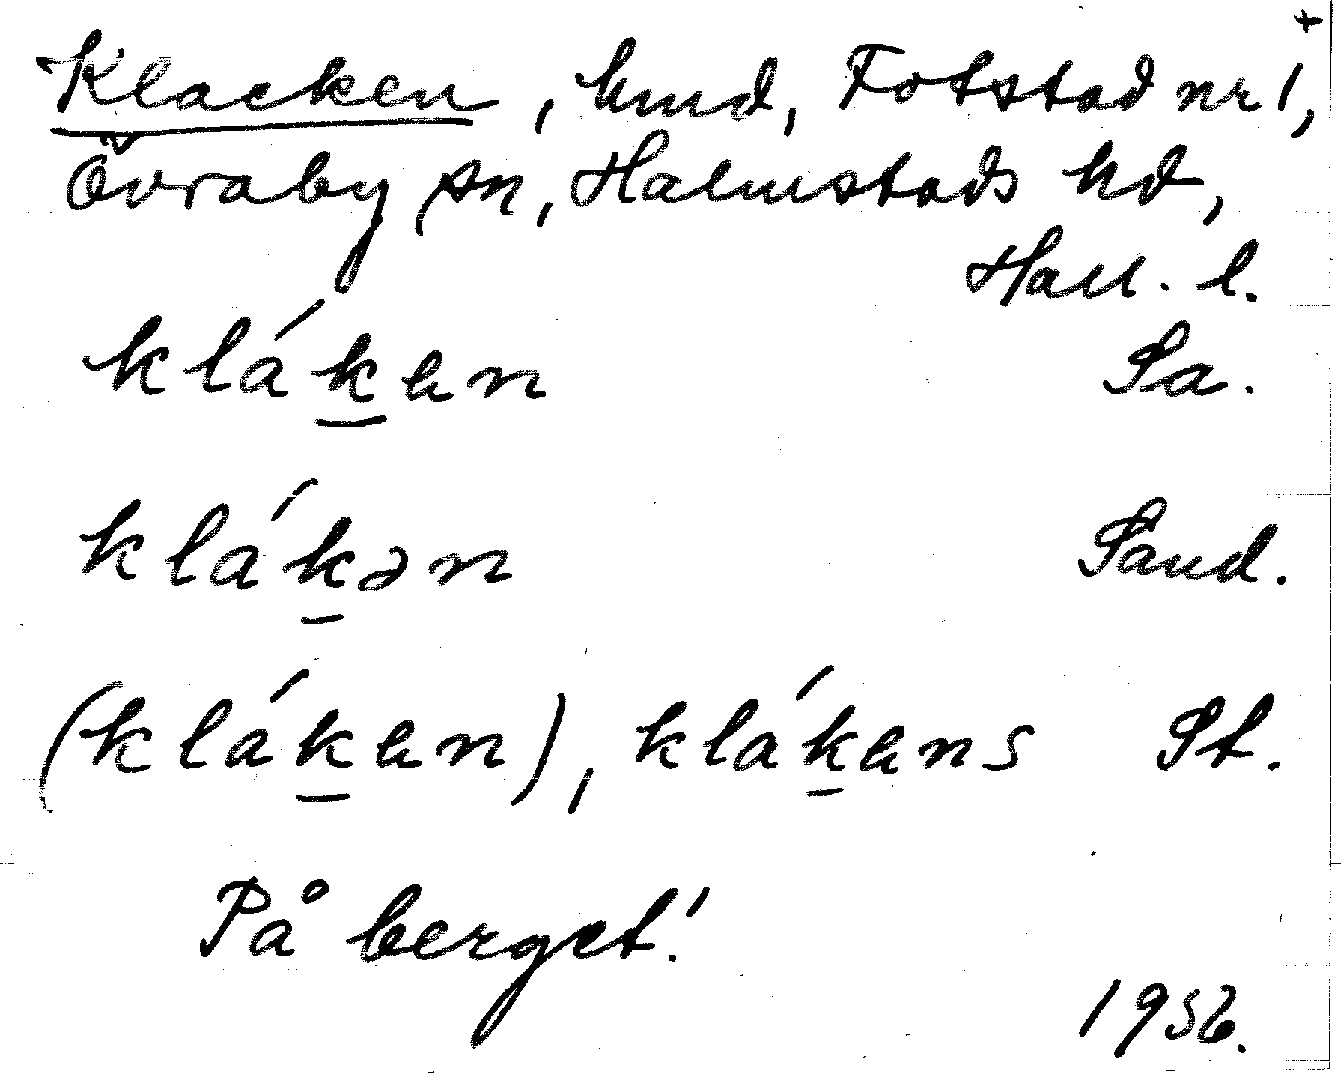 +
Klacken, hmd, Fotstad nr 1,
Övraby sn, Halmstads hd,
Hall. l.
klák̲en Sa.
klák̲ən Sand.
(klák̲en), klák̲ens St.
På berget!
1956.